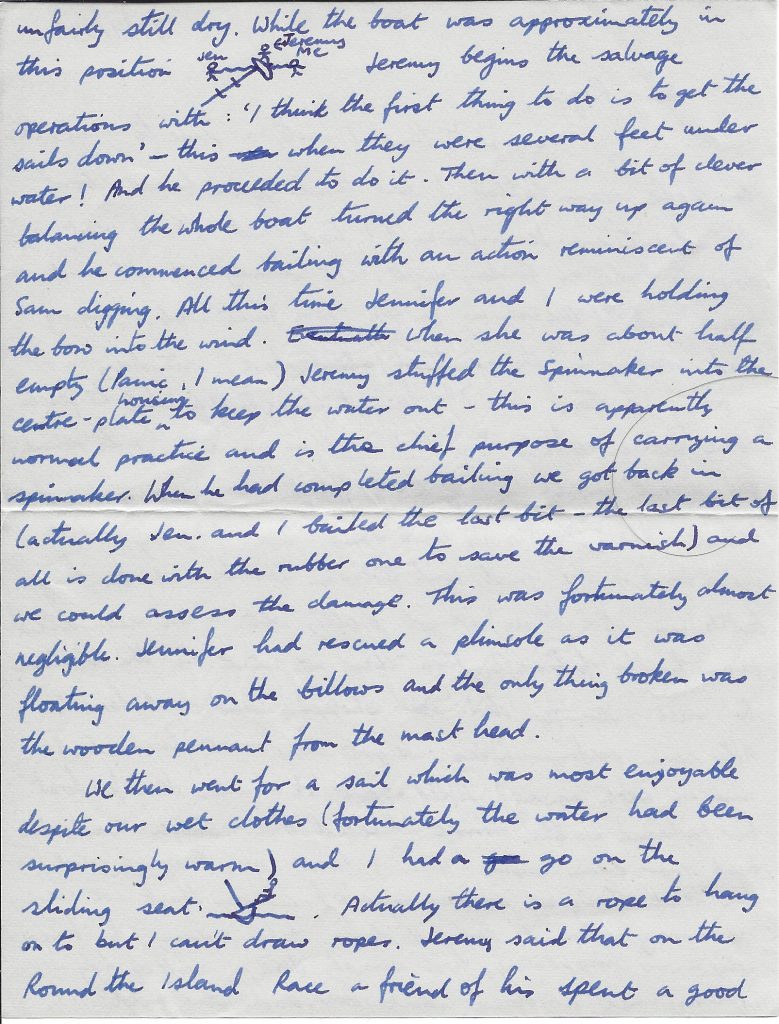 unfairly still dry. While the boat was approximately in
this position Jen Jeremy Me Jeremy begins the salvage
operations with: 'I think the first thing to do is to get the
sails down' – this when they were several feet under
water! And he proceeded to do it. Then with a bit of clever
balancing the whole boat turned the right way up again
and he commenced bailing with an action reminiscent of
Sam digging. All this time Jennifer and I were holding
the bow into the wind. When she was about half
empty (Panic, I mean) Jeremy stuffed the Spinnaker into the
centre-plate housing to keep the water out – this is apparently
normal practice and is the chief purpose of carrying a
spinnaker. When he had completed bailing we got back in
(actually Jen. and I bailed the last bit – the last bit of
all is done with the rubber one to save the varnish) and
we could assess the damage. This was fortunately almost
negligible. Jennifer had rescued a plimsole as it was
floating away on the billows and the only thing broken was
the wooden pennant from the mast head.
We then went for a sail which was most enjoyable
despite our wet clothes (fortunately the water had been
surprisingly warm) and I had a go on the
sliding seat. Actually there is a rope to hang
on to but I can't draw ropes. Jeremy said that on the
Round the Island Race a friend of his spent a good